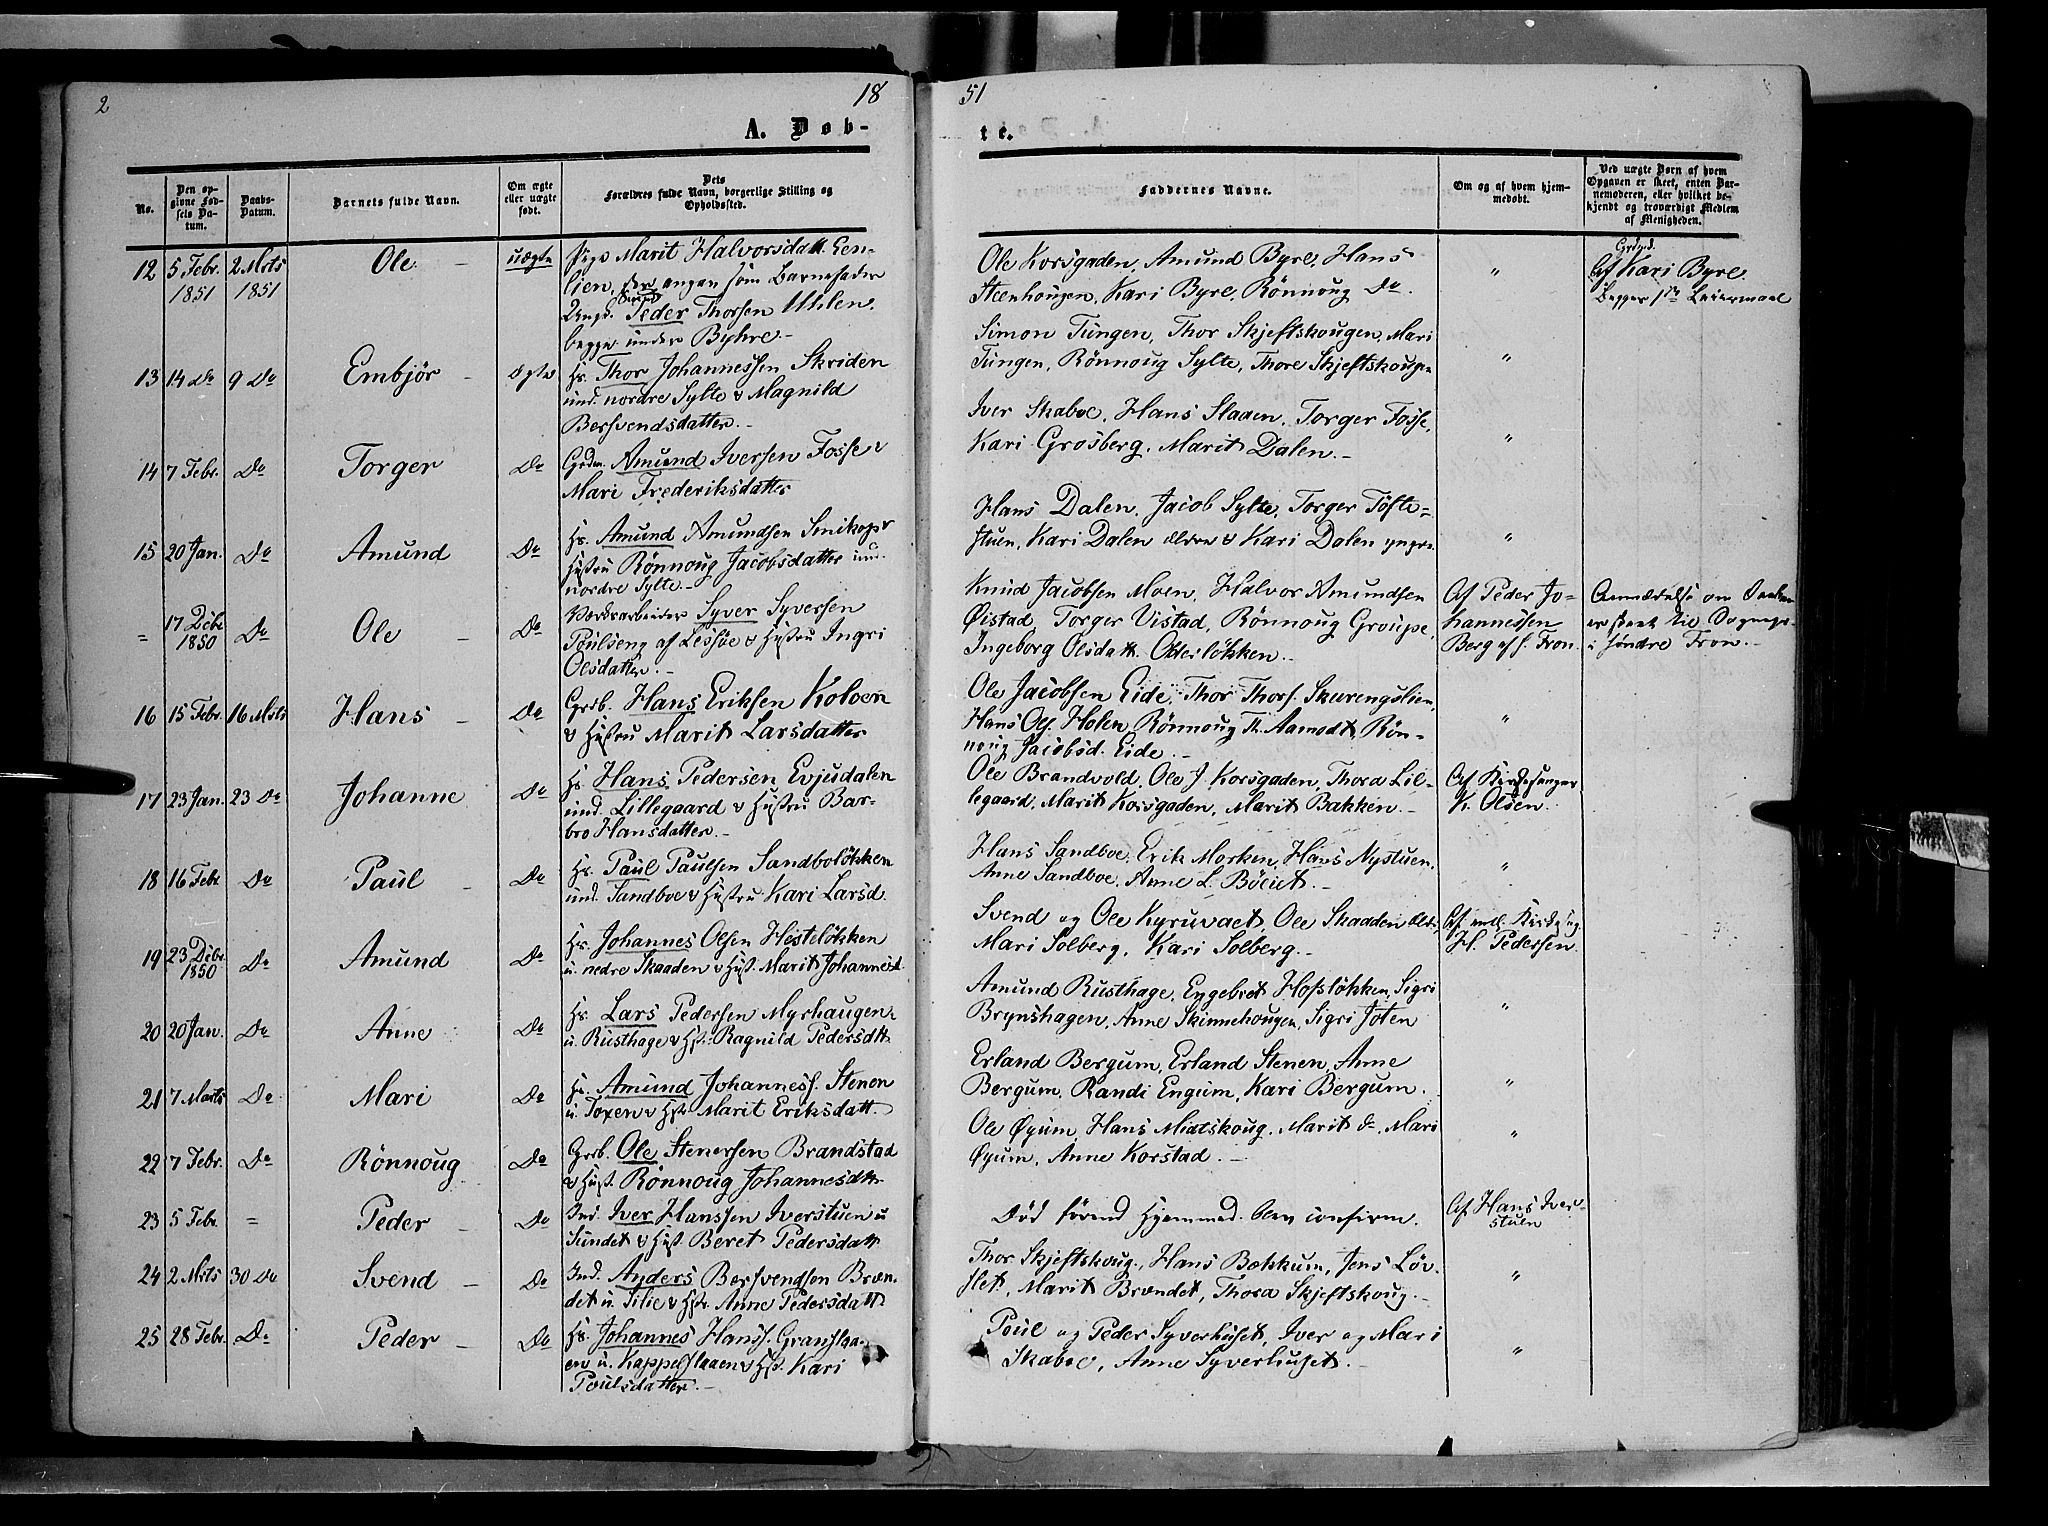 2
18
51
A. Døb-
te.
No.
Den op-
givne Fød-
sels Da-
tum.
Daabs-
Datum.
Barnets fulde Navn.
Om ægte
eller uægte
født.
Dets
Forældres fulde Navn, borgerlige Stilling og
Opholdssted.
Faddernes Navne.
Om og af hvem hjem-
medøbt.
Ved uægte Børn af hvem
Opgaven er skeet, enten Bar-
nemoderen, eller hvilket be-
kjendt og troværdigt Medlem
af Menigheden.
12 5 Febr. 2 Mrts Ole uægte Pige Marit Halvorsdatt. Een-
1851 1851 lien, der angav som Barnefader
Ungk. Peder Thorsen Uhlen,
begge under Byhre.
Ole Korsgaden, Amund Byre, Hans
Steenhougen, Kari Byre, Rönnoug Do. "
Af Kari Byre.
Begges 1ste Leiermaal
13 14 Do 9 Do Embjör ægte Hs. Thor Johannessen Skriden
und. nordre Sylte & Magnild
Bersvendsdatter.
Simon Tungen, Thor Skjeftskougen, Mari
Tungen, Rönnoug Sylte, Thore Skjeftskoug "
14 7 Febr. Do Torger Do Grdm. Amund Iversen Fosse &
Mari Frederiksdatter
Iver Skaboe, Hans Slaaen, Torger Fosse,
Kari Grosberg, Marit Dalen. "
15 20 Jan. Do Amund Do Hs. Amund Amundsen Smikop &
Hustru Rönnoug Jacobsdatter und.
nordre Sylte.
Hans Dalen, Jacob Sylte, Torger Tofte=
stuen, Kari Dalen ældre & Kari Dalen yngre. "
= 17 Debr. 1850 Do Ole Do Værksarbeider Syver Syversen
Poulseng af Lessöe & Hustru Ingri
Olsdatter.
Knud Jacobsen Moen, Halvor Amundsen
Øistad, Torger Vistad, Rönnoug Groupe,
Ingeborg Olsdatt. Oderlökken.
Af Peder Jo-
hannessen
Berg af s. Fron.
Anmeldelse om Daaben
er skeet til
i søndre Fron.
16 15 Febr. 16 Mrts Hans Do Grdb. Hans Eriksen Koloen
& Hustru Marit Larsdatter
Ole Jacobsen Eide, Thor Thors. Skurengslien,
Hans Ols. Holen, Rönnoug Th. Aamodt, Rön-
noug Jacobsd. Eide. "
17 23 Jan. 23 Do Johanne Do Hs. Hans Pedersen Evjudalen
und. Lillegaard & Hustru Bar-
bro Hansdatter.
Ole Brandvold, Ole J. Korsgaden, Thora Lil-
legaard, Marit Korsgaden, Marit Bakken.
Af Kirkesanger
K. Olsen.
18 16 Febr. Do Paul Do Hs. Paul Paulsen Sandbolökken
und. Sandboe & Hustru Kari Larsd.
Hans Sandboe, Erik Morken, Hans Nystuen,
Anne Sandboe, Anne L. Böeiet. "
19 23 Debr. 1850 Do Amund Do Hs. Johannes Olsen Hestelökken
u. nedre Skaaden & Hust. Marit Johannesd.
Svend og Ole Kyruvaet, Ole Skaaden,
Mari Solberg, Kari Solberg.
H. Pedersen.
20 20 Jan. Do Anne Do Hs. Lars Pedersen Myrhaugen
u. Rusthage & Hst. Ragnild Pedersdtt.
Amund Rusthage, Engebret Hofslökken, Sigri
Brynshagen, Anne Skinnehougen, Sigri Joten "
21 7 Marts Do Mari Do Hs. Amund Johanness. Stenen
u. Toxen & Hst. Marit Eriksdatt.
Erland Bergum, Erland Stenen, Anne
Bergum, Randi Engum, Kari Bergum. "
22 7 Febr. Do Rönnoug Do Grdb. Ole Stenersen Brandstad
& Hust. Rönnoug Johannesdtr.
Ole Øyum, Hans Midtskoug, Marit do. Mari
Øyum, Anne Korstad. "
23 5 Febr. = Peder Do Ind. Iver Hanssen Iverstuen u
Sundet & Hust. Beret Pedersdatt
Död förend Hjemmed. blev confirm.
Af Hans Iver-
stuen
24 2 Mrts 30 Do Svend Do Ind. Anders Bersvendsen Bræn-
det u. Silie & Hst. Anne Pedersdatt
Thor Skjeftskoug, Hans Bækkum, Jens Löv-
slet, Marit Brændet, Thora Skjeftskoug. "
25 28 Febr. Do Peder Do Hs. Johannes Hanss. Gransla-
en u. Kappelslaaen & Hst. Kari
Poulsdatter.
Poul og Peder Syverhuset, Iver og Mari
Skaboe, Anne Syverhuset. "